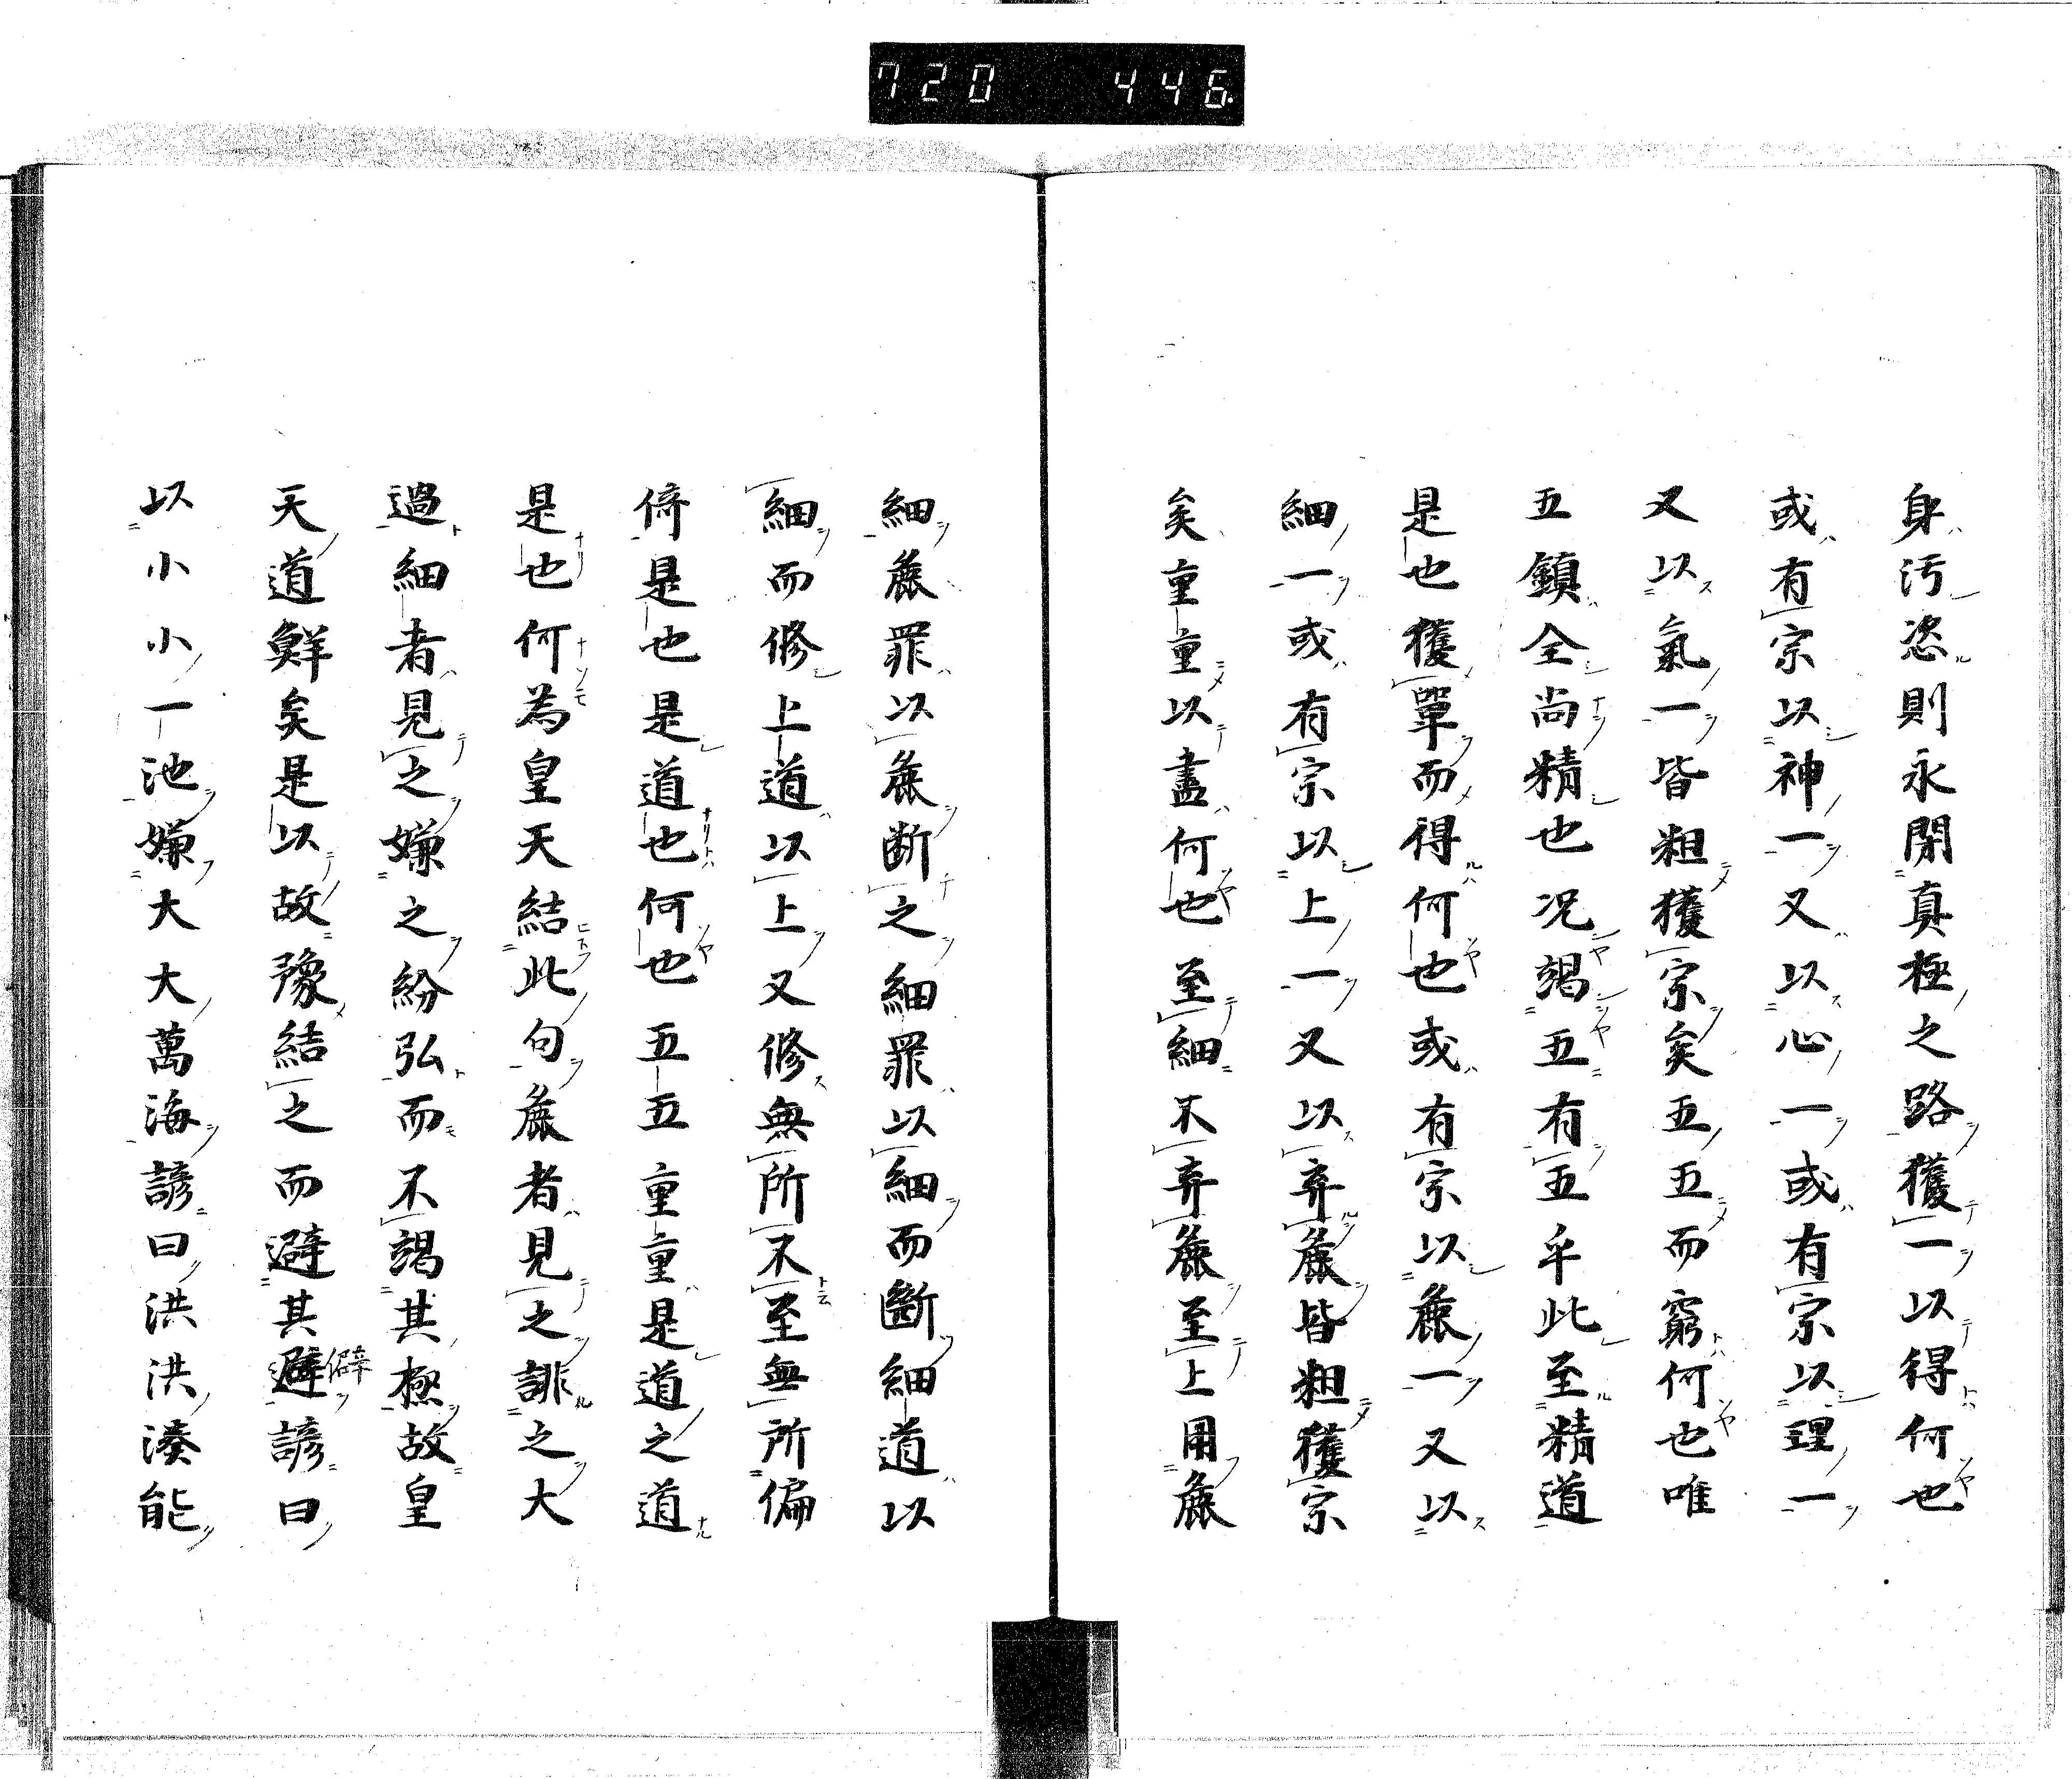 720 446
身汚恣則永閉真極之路獲一以得何也
或有宗以神一又以心一或有宗以理一
又以氣一皆粗獲宗矣五五而窮何也唯
五鎮全尚精也况竭五有五乎此至精道
是也獲單而得何也或有宗以麁一又以
細一或有宗以上一又以弃麁皆粗獲宗
矣重重以盡何也至細不弃麁至上用麁
細麁罪以麁断之細罪以細而斷細道以
細而修上道以上又修無所不至無所偏
倚是也是道也何也五五重重是道之道
是也何為皇天結此句麁者見之誹之大
過細者見之嫌之紛弘而不竭其極故皇
天道鮮矣是以故豫結之而避其避諺曰
僻
以小小一池嫌大大萬海諺曰洪洪湊能